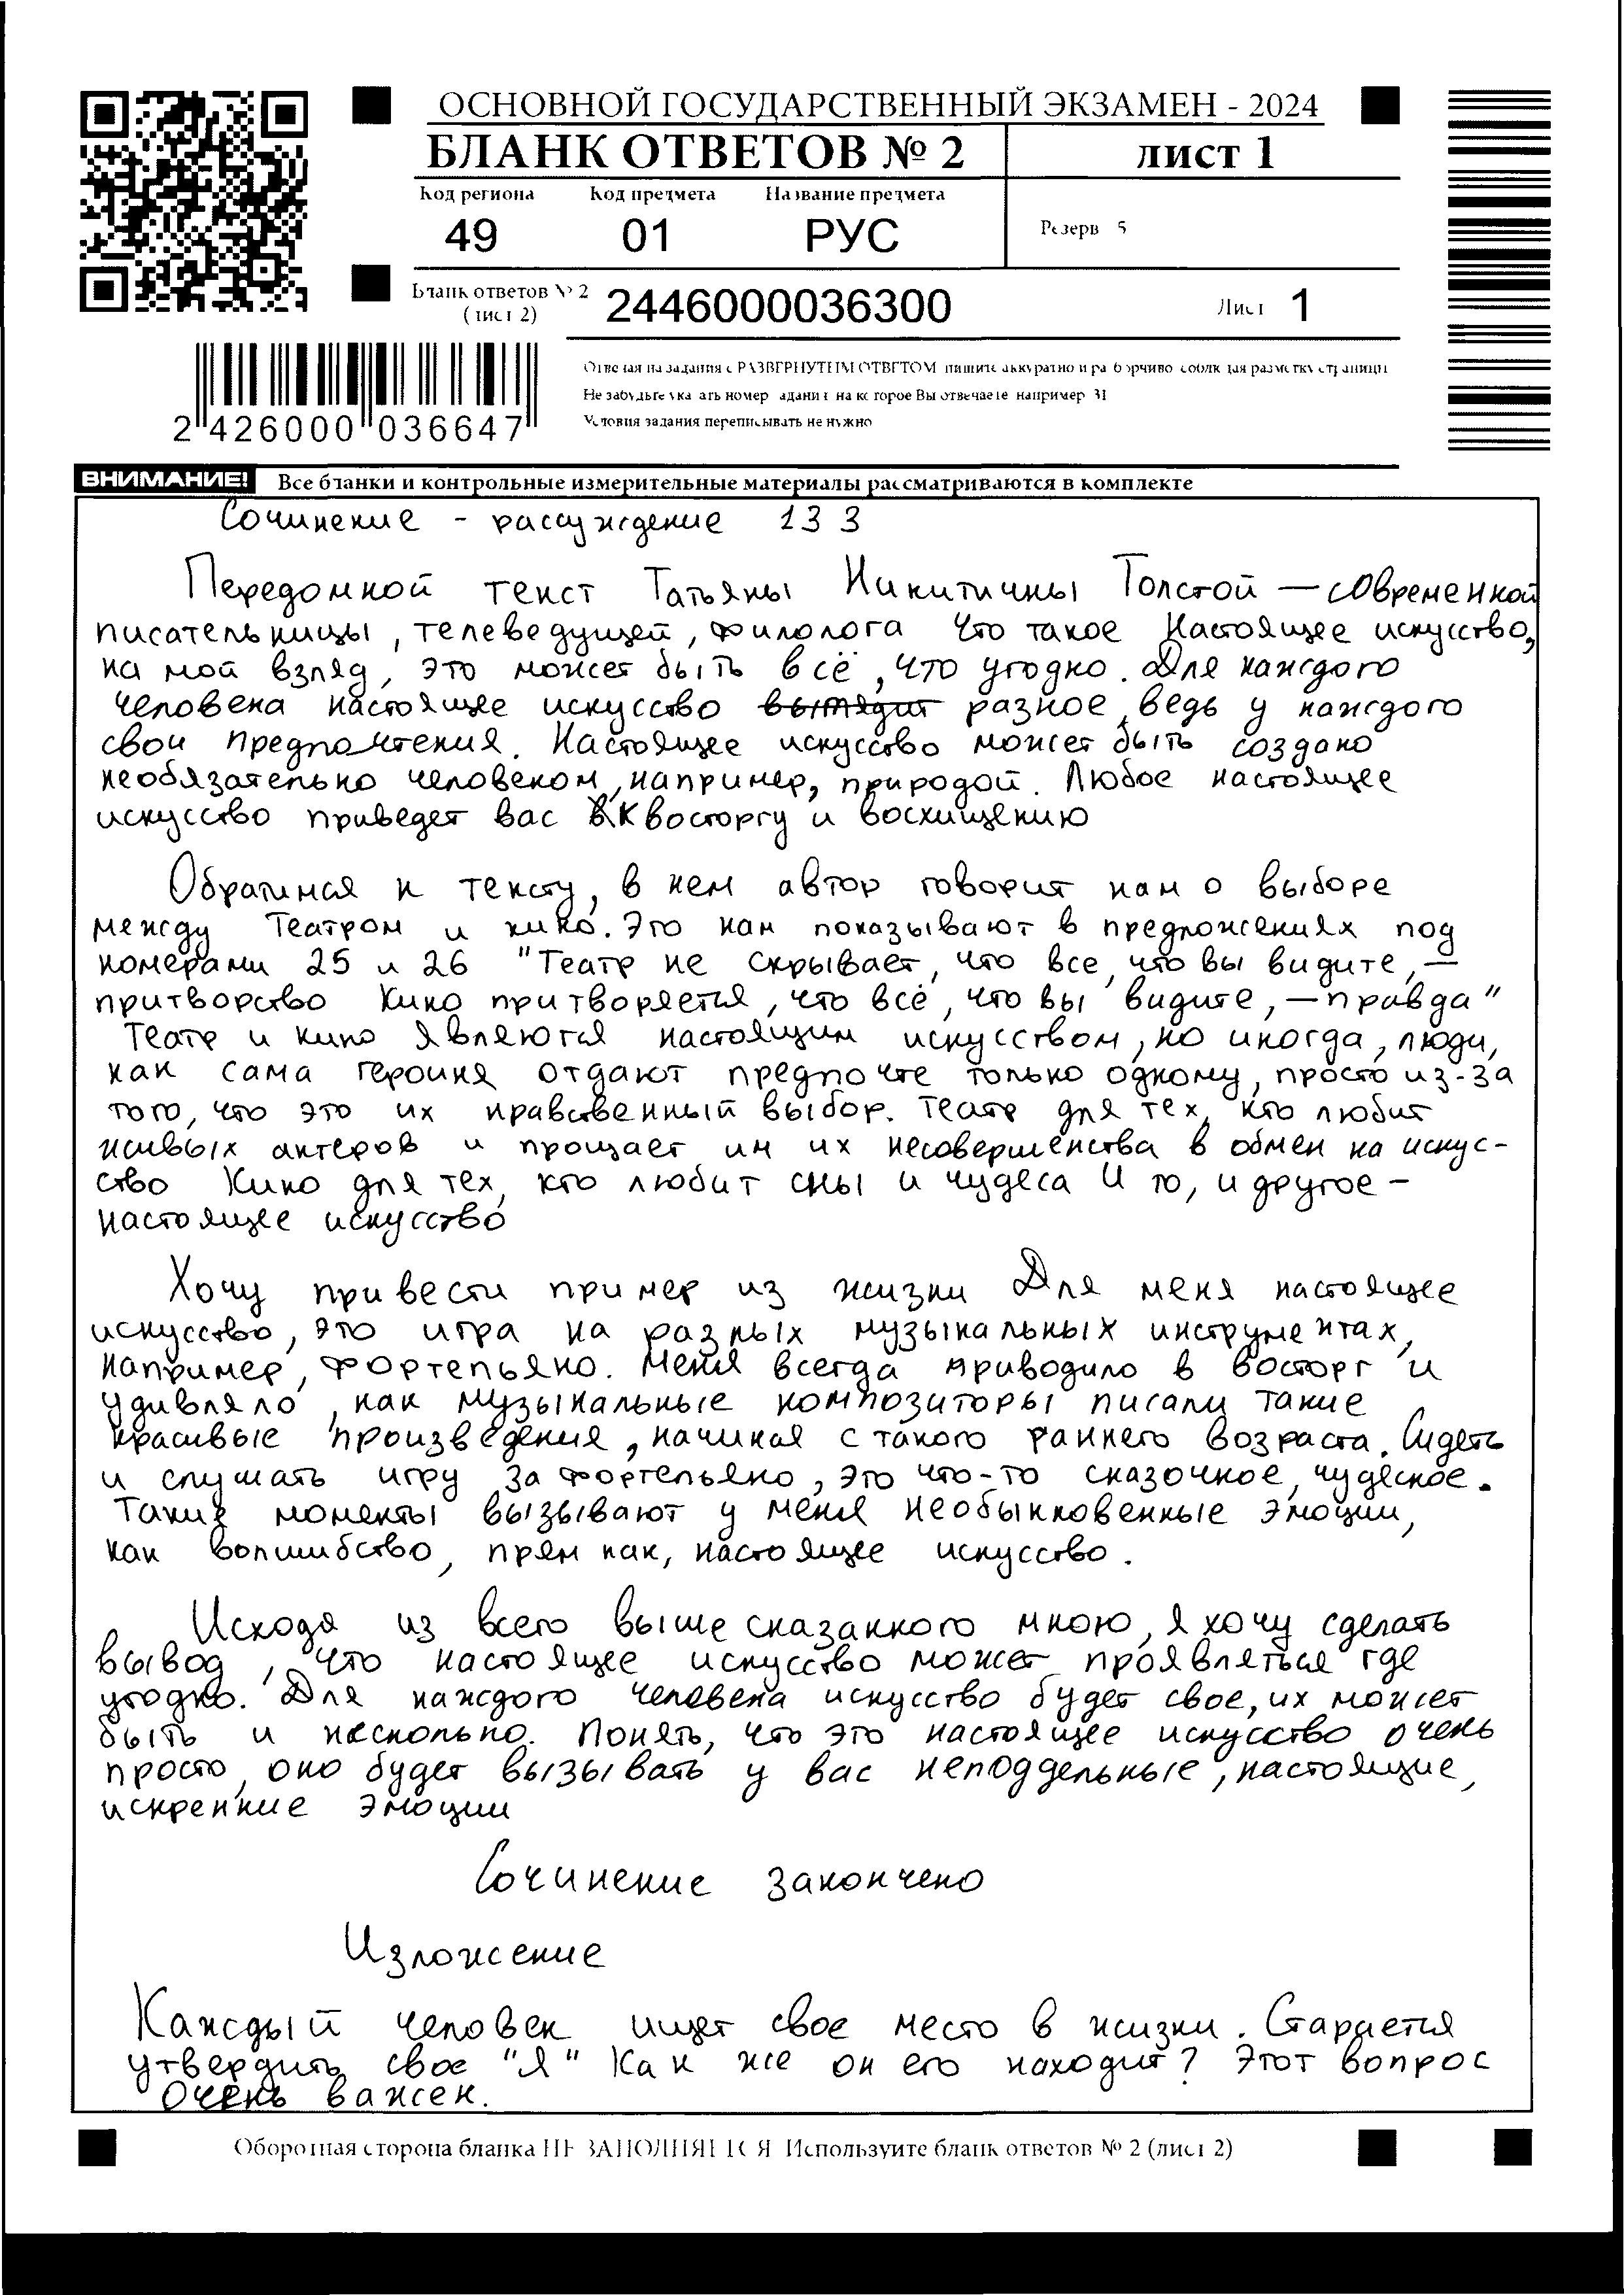 ОСНОВНОЙ ГОСУДАРСТВЕННЫЙ ЭКЗАМЕН - 2024
БЛАНК ОТВЕТОВ № 2
лист 1
Код региона Код предмета Название предмета
49 01 РУС
Резерв 5
Бланк ответов № 2
(лист 2)
2446000036300
Лист 1
Отвечая на задания с РАЗВЕРНУТЫМ ОТВЕТОМ пишите аккуратно и разборчиво соблюдая разметку страницы
Не забудьте указать номер задания на которое Вы отвечаете например 31
Условия задания переписывать не нужно
2 426000 036647
ВНИМАНИЕ! Все бланки и контрольные измерительные материалы рассматриваются в комплекте
Сочинение - рассуждение 13 3
Передомной текст Татьяны Никитичны Толстой — современной
писательницы, телеведущей, филолога Что такое Настоящее искусство,
на мой взляд, это может быть всё, что угодно. Для каждого
человека настоящее искусство разное, ведь у каждого
свои предпочтения. Настоящее искусство может быть создано
необязательно человеком, например, природой. Любое настоящее
искусство приведет вас к восторгу и восхищению
Обратимся к тексту, в нем автор говорит нам о выборе
между театром и кино. Это нам показывают в предложениях под
номерами 25 и 26 "Театр не скрывает, что все, что вы видите, —
притворство Кино притворяется, что всё, что вы видите, — правда"
Театр и кино являются настоящим искусством, но иногда, люди,
как сама героиня отдают предпочте только одному, просто из-за
того, что это их нравственный выбор. Театр для тех, кто любит
живых актеров и прощает им их несовершенства в обмен на искус-
ство Кино для тех, кто любит сны и чудеса И то, и другое -
настоящее искусство
Хочу привести пример из жизни Для меня настоящее
искусство, это игра на разных музыкальных инструментах,
например, фортепьяно. Меня всегда приводило в восторг и
удивляло, как музыкальные композиторы писали такие
красивые произведения, начиная с такого раннего возраста. Сидеть
и слушать игру за фортепьяно, это что-то сказочное, чудесное.
Такие моменты вызывают у меня необыкновенные эмоции,
как волшибство, прям как, настоящее искусство.
Исходя из всего выше сказанного мною, я хочу сделать
вывод, что настоящее искусство может проявляться где
угодно. Для каждого человека искусство будет свое, их может
быть и несколько. Понять, что это настоящее искусство очень
просто, оно будет вызывать у вас неподдельные, настоящие,
искренние эмоции
Сочинение закончено
Изложение
Каждый человек ищет свое место в жизни. Старается
утвердить свое "Я" Как же он его находит? Этот вопрос
очень важен.
Оборотная сторона бланка НЕ ЗАПОЛНЯЕТСЯ Используите бланк ответов № 2 (лист 2)